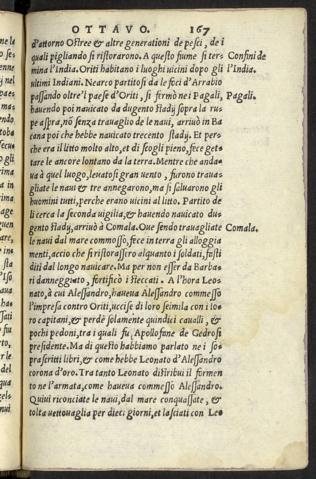 OTTAVO. 167
d'attorno Ostree & altre generationi de pesci, de i
quali pigliando si ristorarono. A questo fiume si ter- Confini de
mina l'India. Oriti habitano i luoghi uicini dopo gli l'India.
ultimi Indiani. Nearco partitosi da le foci d'Arrabio
passando oltre'l paese d'Oriti, si firmò ne i Pagali, Pagali.
hauendo poi nauicato da dugento stadij sopra la rus
pe aspra, nō senza trauaglio de le naui, arriuò in Ba
cana poi che hebbe nauicato trecento stadij. Et pers
che era il litto molto alto, et di scogli pieno, fece get=
tare le ancore lontano da la terra. Mentre che anda=
ua à quel luogo, leuatosi gran uento, furono trauas
gliate le naui & tre annegarono, ma si saluarono gli
huomini tutti, perche erano uicini al litto. Partito de
li cerca la seconda uigilia, & hauendo nauicato dus
gento stadij, arriuò à Comala. Oue sendo trauagliate Comala.
le naui dal mare commosso, fece in terra gli alloggia
menti, accio che si ristorassero alquanto i soldati, fasti
diti dal longo nauicare. Ma per non esser da Barba=
ri danneggiato, fortificò i steccati. A l'hora Leos
nato, à cui Alessandro, haueua Alessandro commesso
l'impresa contro Oriti, uccise di loro seimila con i lo=
ro capitani, & perdè solamente quindici caualli, &
pochi pedoni, tra i quali fu, Apollofane de Gedrosi
presidente. Ma di questo habbiamo parlato ne i so=
prascritti libri, & come hebbe Leonato d'Alessandro
corona d'oro. Tra tanto Leonato distribuì il formen
to ne l'armata, come haueua commesso Alessandro.
Quiui riconciate le naui, dal mare conquassate, &
tolta uettouaglia per dieci giorni, et lasciati con Leo